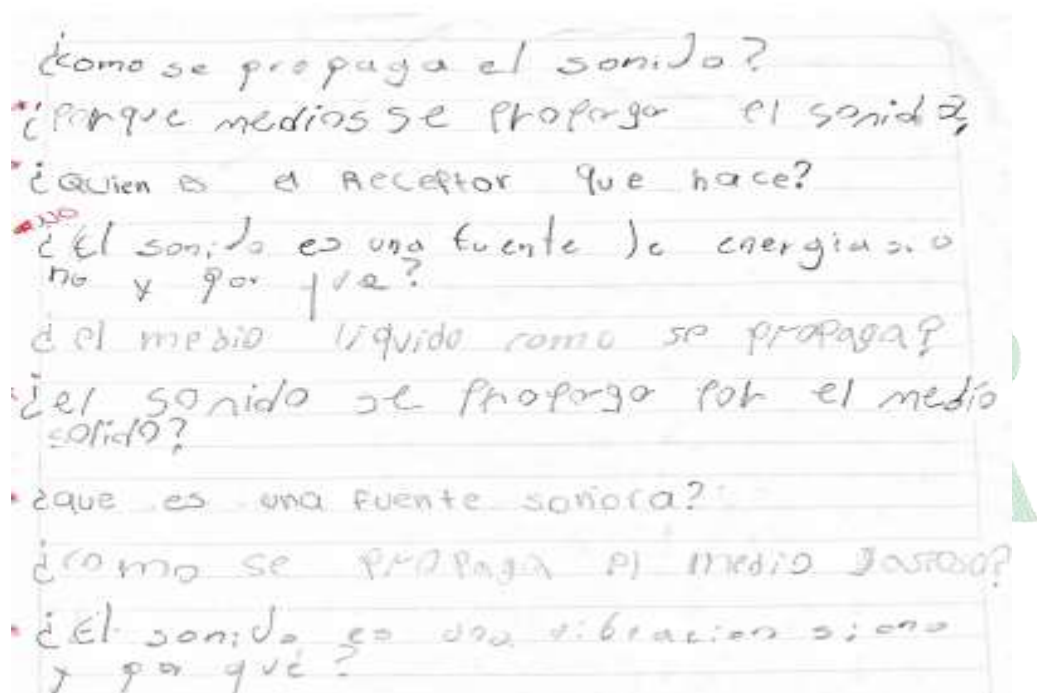 ¿como se propaga el sonido?
¿Porque medios se propaga el sonido?
¿Quien es el Receptor que hace?
NO
¿El sonido es una fuente de energia si o
no y por que?
¿el medio liquido como se propaga?
¿el sonido se propaga por el medio
solido?
¿que es una fuente sonora?
¿como se propaga el medio gaseoso?
¿El sonido es una vibracion si o no
y por qué?